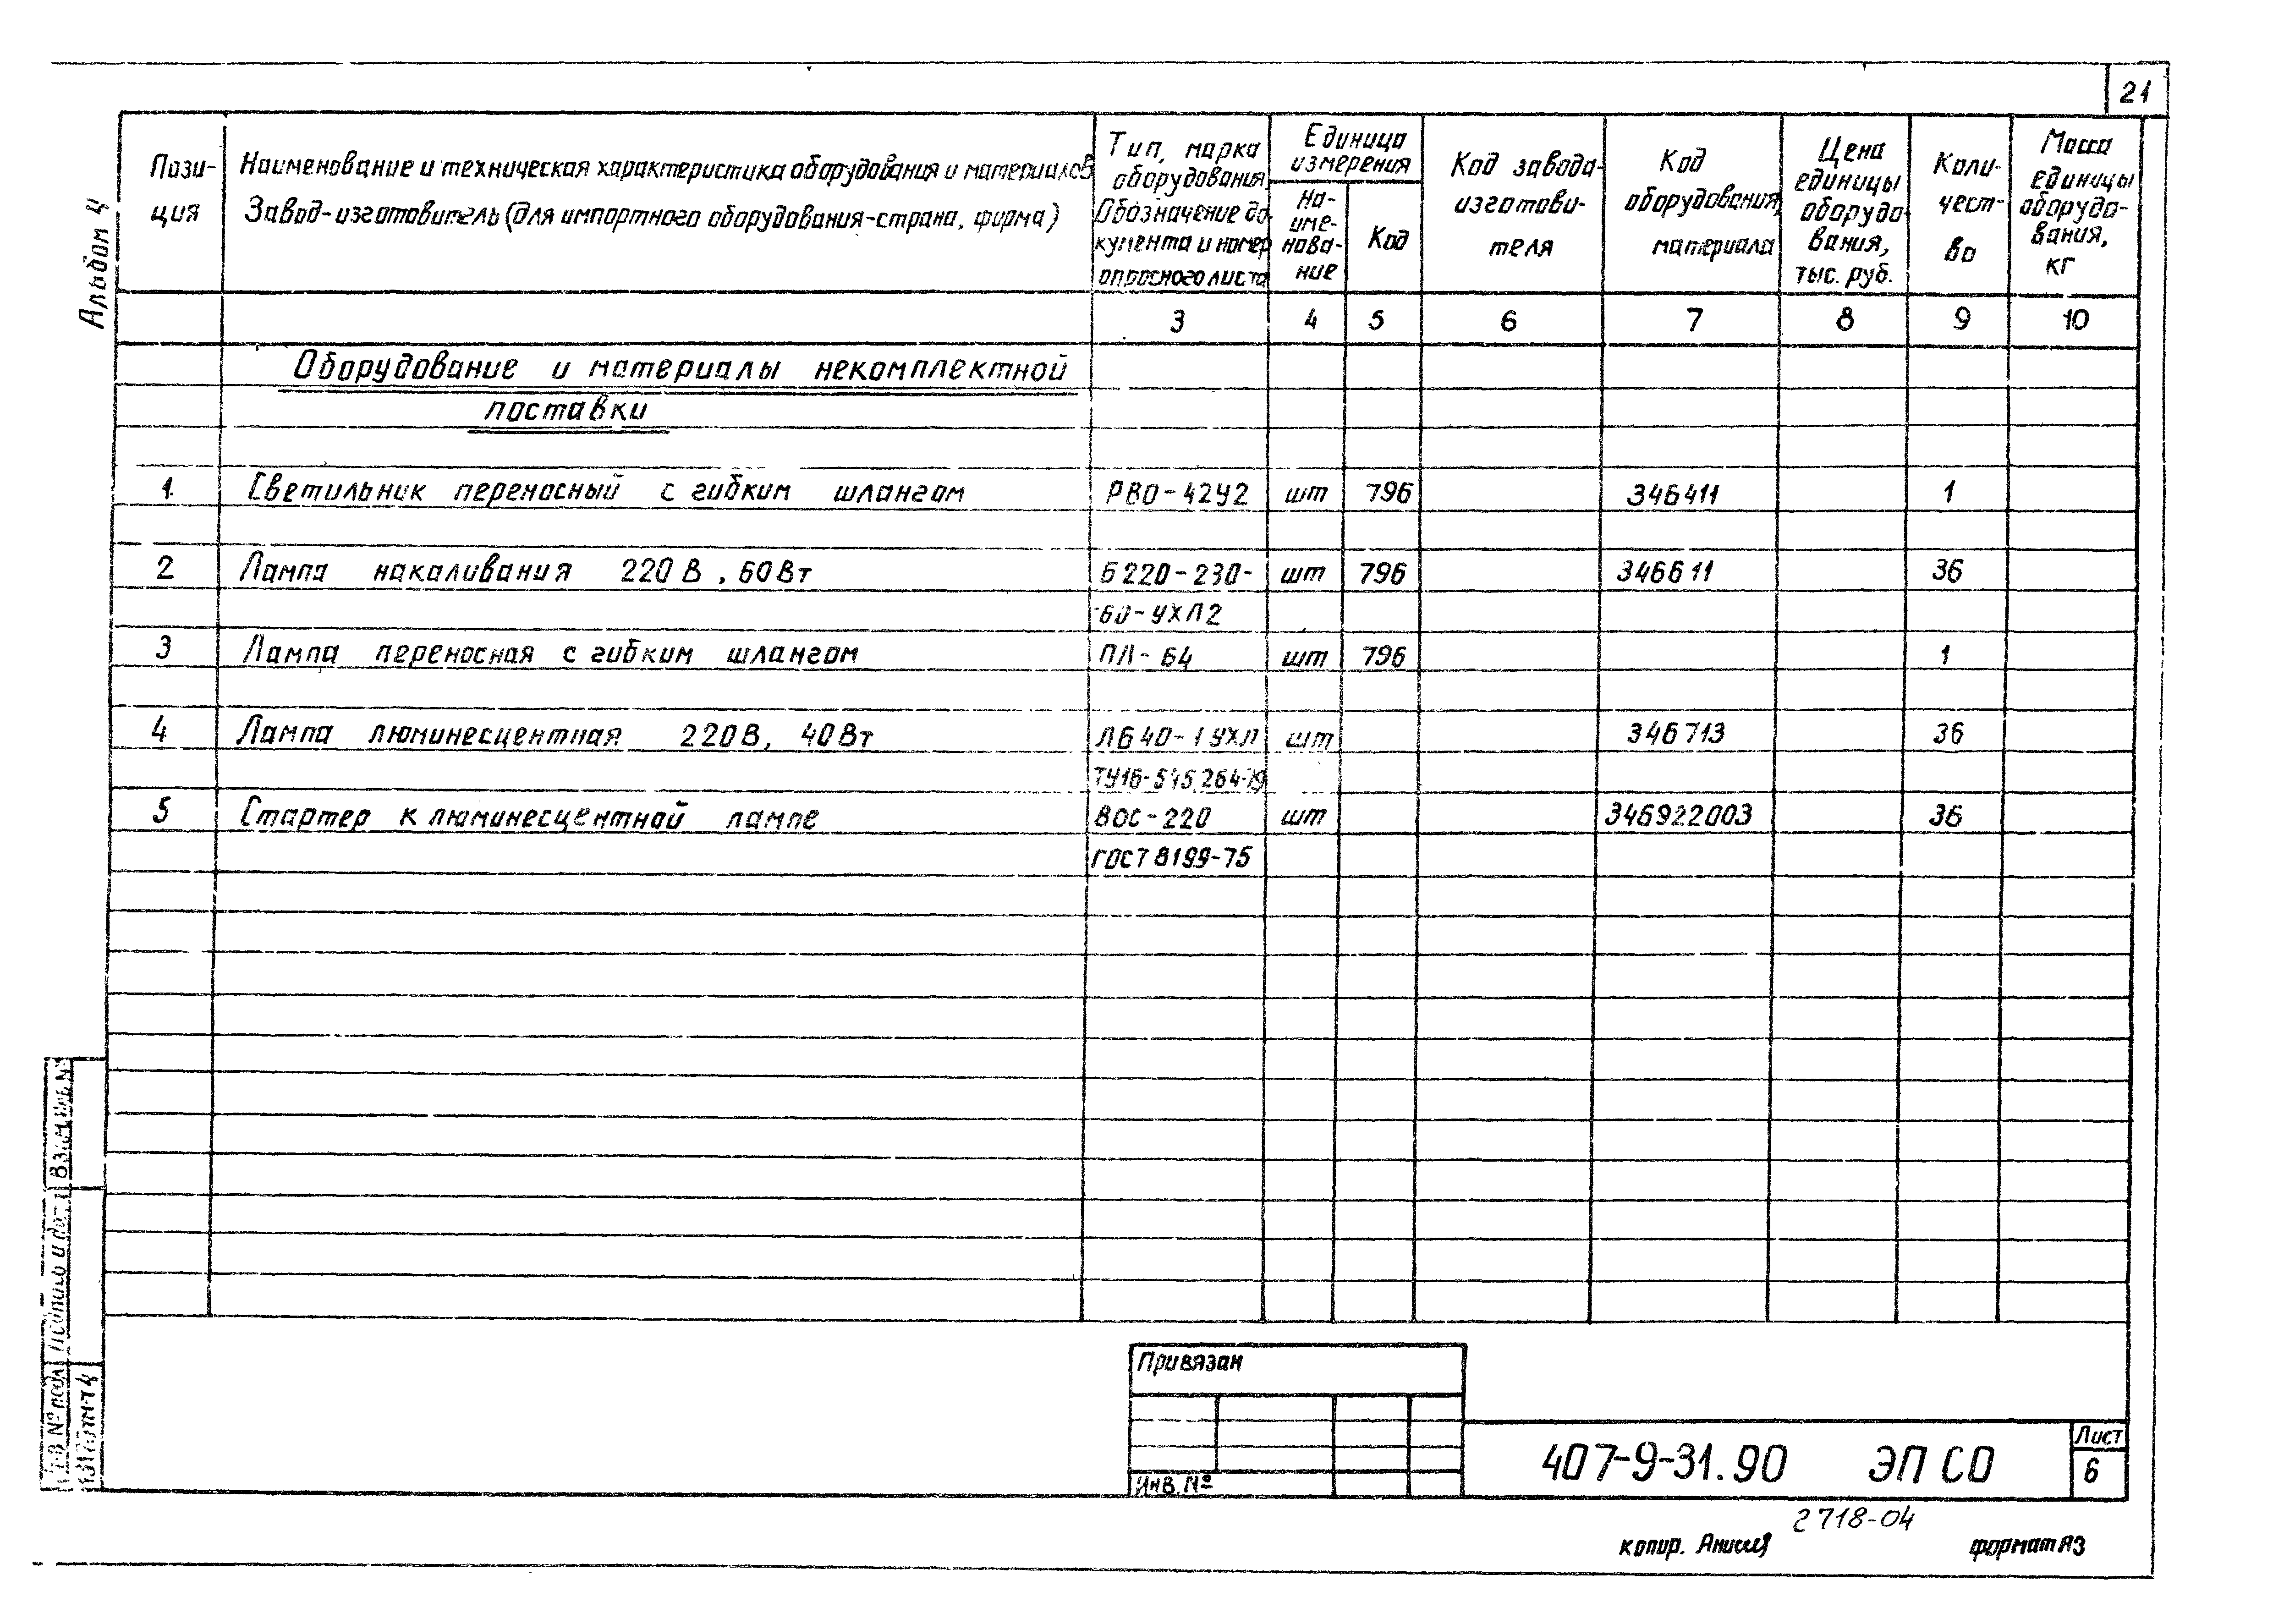 21
Альбом 4
Пози-
ция
Наименование и техническая характеристика оборудования и материалов
Завод-изготовитель (для импортного оборудования-страна, фирма)
Тип, марка
оборудования
Обозначение до
кумента и номер
опросного листа
Единица
измерения
На-
име-
нова-
ние
Код
Код завода-
изготови-
теля
Код
оборудования,
материала
Цена
единицы
оборудо
вания,
тыс. руб.
Коли-
чест-
во
Масса
единицы
оборудо-
вания,
кг
3 4 5 6 7 8 9 10
Оборудование и материалы некомплектной
поставки
1 Светильник переносный с гибким шлангом РВО-42У2 шт 796 346411 1
2 Лампа накаливания 220В, 60Вт Б220-230- шт 796 346611 36
-60-УХЛ2
3 Лампа переносная с гибким шлангом ПЛ-64 шт 796 1
4 Лампа люминесцентная 220В, 40Вт ЛБ40-1УХЛ шт 346713 36
ТУ16-545.264-79
5 Стартер к люминесцентной лампе ВОС-220 шт 346922003 36
ГОСТ 8199-75
Взам. инв. №
Подпись и дата
Инв. № подл
Привязан
Инв. №
407-9-31.90 ЭП СО
Лист
6
2718-04
копир. формат А3